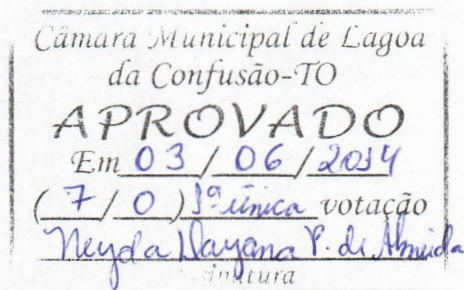 Câmara Municipal de Lagoa
da Confusão-TO
APROVADO
Em 03 / 06 / 2014
( 7 / 0 ) 1ª única votação
Neyda Dayana P. de Almeida